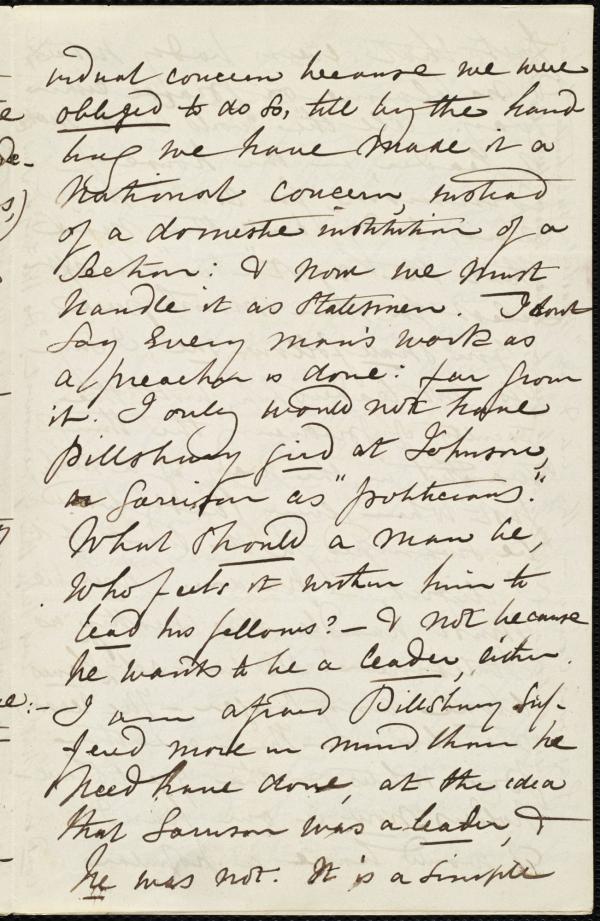 vidual concern because we were
obliged to do so, till by the hand-
ling we have made it a
National concern, instead
of a domestic institution of a
Section: & now we must
handle it as statesmen. I dont
say every man's work as
a preacher is done: far from
it. I only would not have
Pillsbury gird at Johnson,
or Garrison as "politicians."
What should a man be,
who feels it within him to
lead his fellows? — & not because
he wants to be a leader, either.
I am afraid Pillsbury suf-
fered more in mind than he
need have done, at the idea
that Garrison was a leader, &
he was not. It is a simple